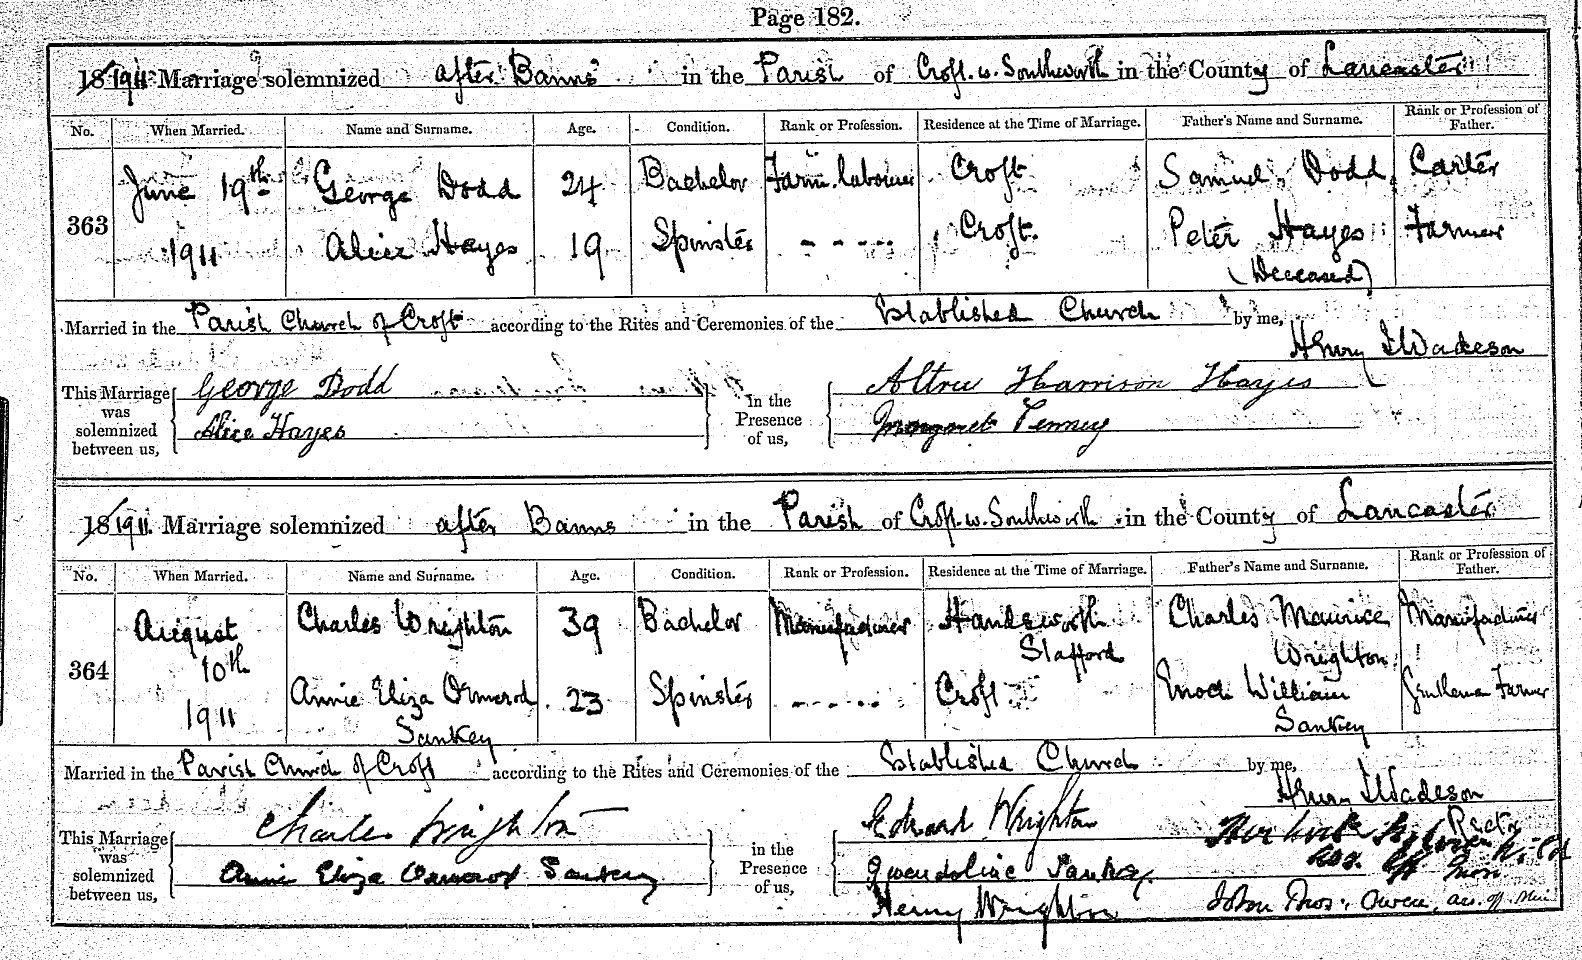 Page 182.
18 1911. Marriage solemnized after Banns in the Parish of Croft. w. Southworth in the County of Lancaster
No. When Married. Name and Surname. Age. Condition. Rank or Profession. Residence at the Time of Marriage. Father's Name and Surname. Rank or Profession of Father.
363 June 19th 1911 George Dodd 24 Bachelor Farm labourer Croft Samuel Dodd Carter
Alice Hayes 19 Spinster - - - - - Croft. Peter Hayes (Deceased) Farmer
Married in the Parish Church of Croft according to the Rites and Ceremonies of the Established Church by me,
Henry Wadeson
This Marriage was solemnized between us, George Dodd Alice Hayes in the Presence of us, Harrison Hayes Margaret
18 1911. Marriage solemnized after Banns in the Parish of Croft. w. Southworth in the County of Lancaster
No. When Married. Name and Surname. Age. Condition. Rank or Profession. Residence at the Time of Marriage. Father's Name and Surname. Rank or Profession of Father.
364 August 10th 1911 Charles Wrighton 39 Bachelor Manufacturer Handsworth Stafford Charles Maurice Wrighton Manufacturer
Annie Eliza Ormerod Sankey 23 Spinster - - - - - Croft. Enoch William Sankey Gentleman Farmer
Married in the Parish Church of Croft according to the Rites and Ceremonies of the Established Church by me,
Henry Wadeson
Rector
This Marriage was solemnized between us, Charles Wrighton Annie Eliza Ormerod Sankey in the Presence of us, Edward Wrighton Gwendoline Sankey Henry Wrighton
John Thos. Owen, as. off. Min